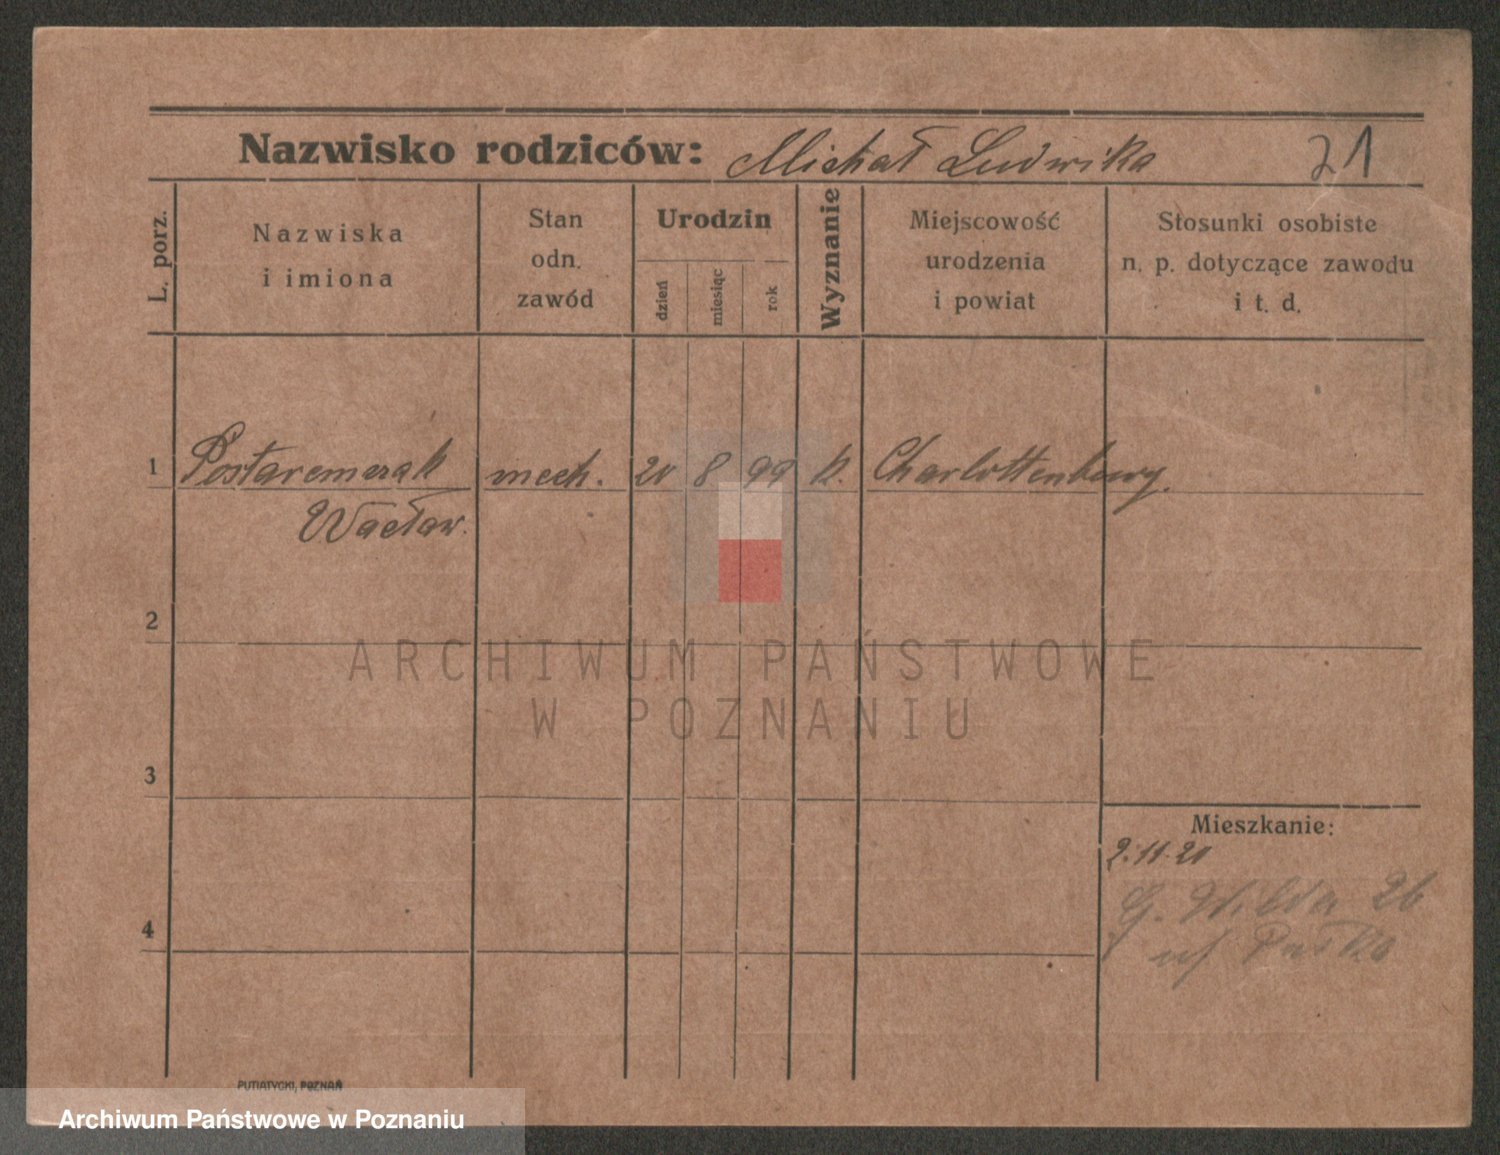 Nazwisko rodziców: Michał Ludwika 21
L. porz.
Nazwiska
i imiona
Stan
odn.
zawód
Urodzin
dzień
miesiąc
rok
Wyznanie
Miejscowość
urodzenia
i powiat
Stosunki osobiste
n. p. dotyczące zawodu
i t. d.
1 mech. 20 8 99 k. Charlottenburg.
Wacław.
2
ARCHIWUM PAŃSTWOWE
W POZNANIU
3
Mieszkanie:
2.11.20
G. Wilda 26
4
PUTIATYCKI, POZNAŃ
Archiwum Państwowe w Poznaniu